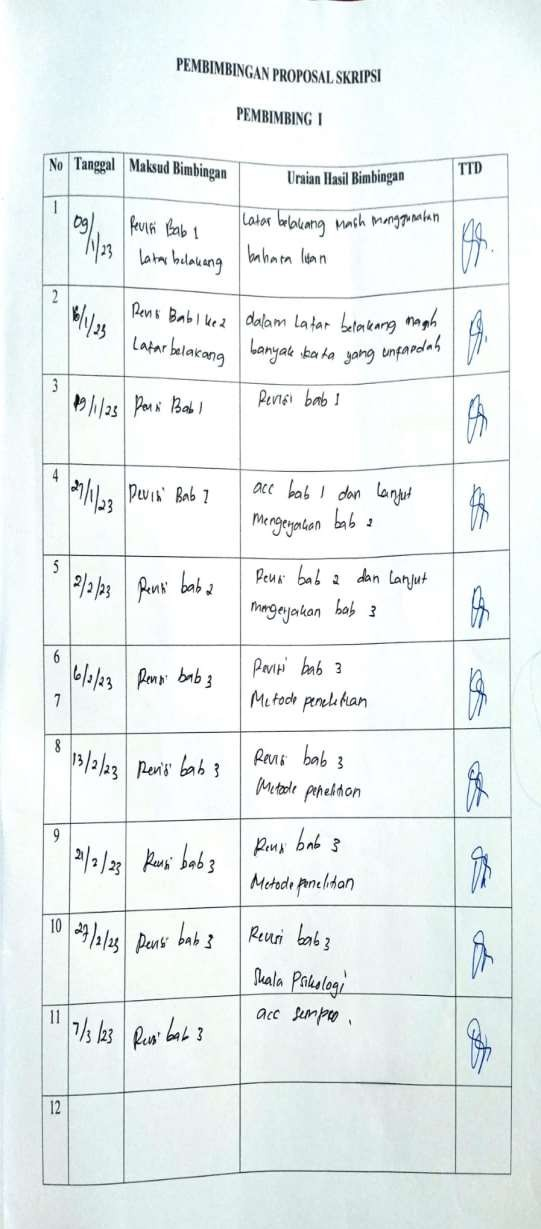 PEMBIMBINGAN PROPOSAL SKRIPSI
PEMBIMBING I
No Tanggal Maksud Bimbingan Uraian Hasil Bimbingan TTD
1 09/1/23 Revisi Bab 1 Latar belakang masih menggunakan
Latar belakang bahasa lisan
2 16/1/23 Revisi Bab 1 ke 2 dalam Latar belakang masih
Latar belakang banyak kata yang
3 19/1/23 Revisi Bab 1 Revisi bab 1
4 27/1/23 Revisi Bab 1 acc bab 1 dan Lanjut
Mengerjakan bab 2
5 2/2/23 Revisi bab 2 Revisi bab 2 dan Lanjut
mengerjakan bab 3
6 6/2/23 Revisi bab 3 Revisi bab 3
7 Metode penelitian
8 13/2/23 Revisi bab 3 Revisi bab 3
Metode penelitian
9 21/2/23 Revisi bab 3 Revisi bab 3
Metode penelitian
10 27/2/23 Revisi bab 3 Revisi bab 3
Skala Psikologi
11 7/3/23 Revisi bab 3 acc sempro.
12